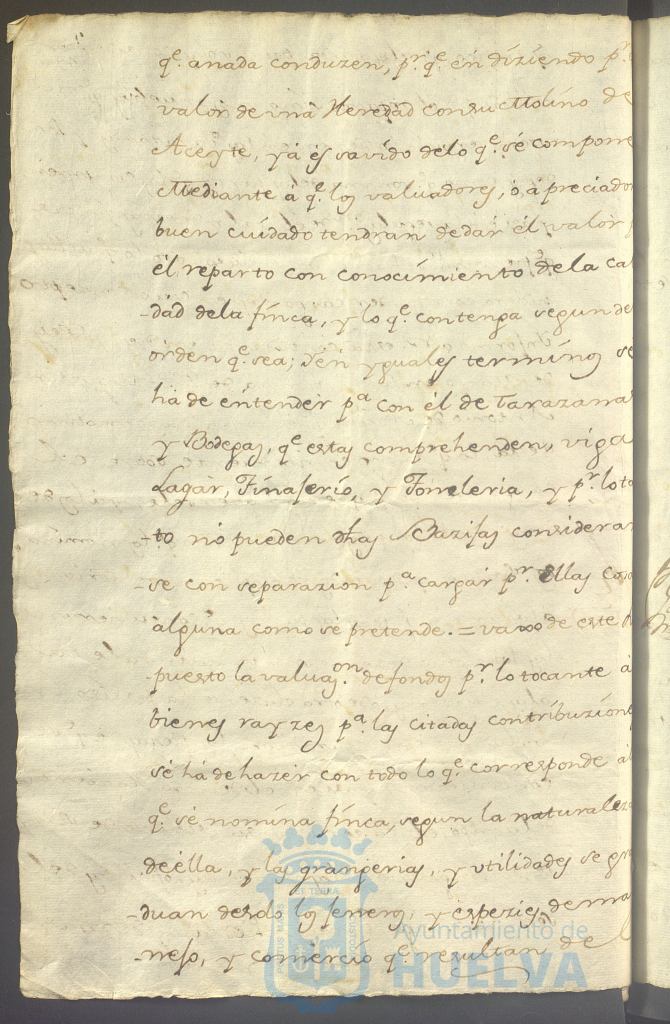 q.^e anada conduzen, p.^r q.^e en diziendo p.^r
valor de vna Heredad con su Molino de
Aceyte, yá és savido delo q.^e sé compone
Mediante á q.^e los valuadores, ó ápreciado
buen cuidado tendrán de dár él valor
él reparto con conocimiento de la ca
-dád dela finca, y lo q.^e contenga segun de
orden q.^e seá; y en yguales terminos se
há de entender p.^a con él de Tarazanas
y Bodegas, q.^e estas comprehenden, viga
Lagar, y Toneleria, y p.^r lo ta
-to nó pueden dhas Vazijas considerar
se con separazion p.^a cargár p.^r Ellas cosa
alguna como sé pretende. = de este
-puesto la valuaz.^on de fondos p.^r lo tocante á
bienes rayzes p.^a las citadas contribuzione
sé há de hazér con todo lo q.^e corresponde á
q.^e sé nomina finca, segun la naturalez
de élla, y las granjerias, y utilidades se gr
-duan desdo los y espezies de ma
-nejo, y comercio q.^e resultan de
Ayuntamiento de
HUELVA